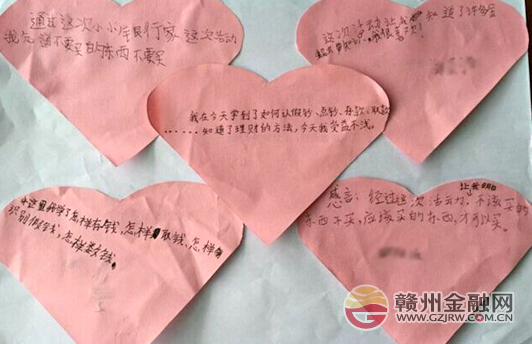 通过这次小小银行家这次活动
我知道不要买的东西不要买
这次活动让我知道了许多金
我很喜欢！
我在今天拿到了如何认假钞、点钞、存款、取款
……知道了理财的方法,今天我受益不浅。
这里我学了怎样存钱,怎样取钱,怎样
识别假钱,怎样数钱,
让我明白
感言：经过这次活动,不该买的
东西不买,应该买的东西,才可以买。
赣州金融网
WWW.GZJRW.COM.CN